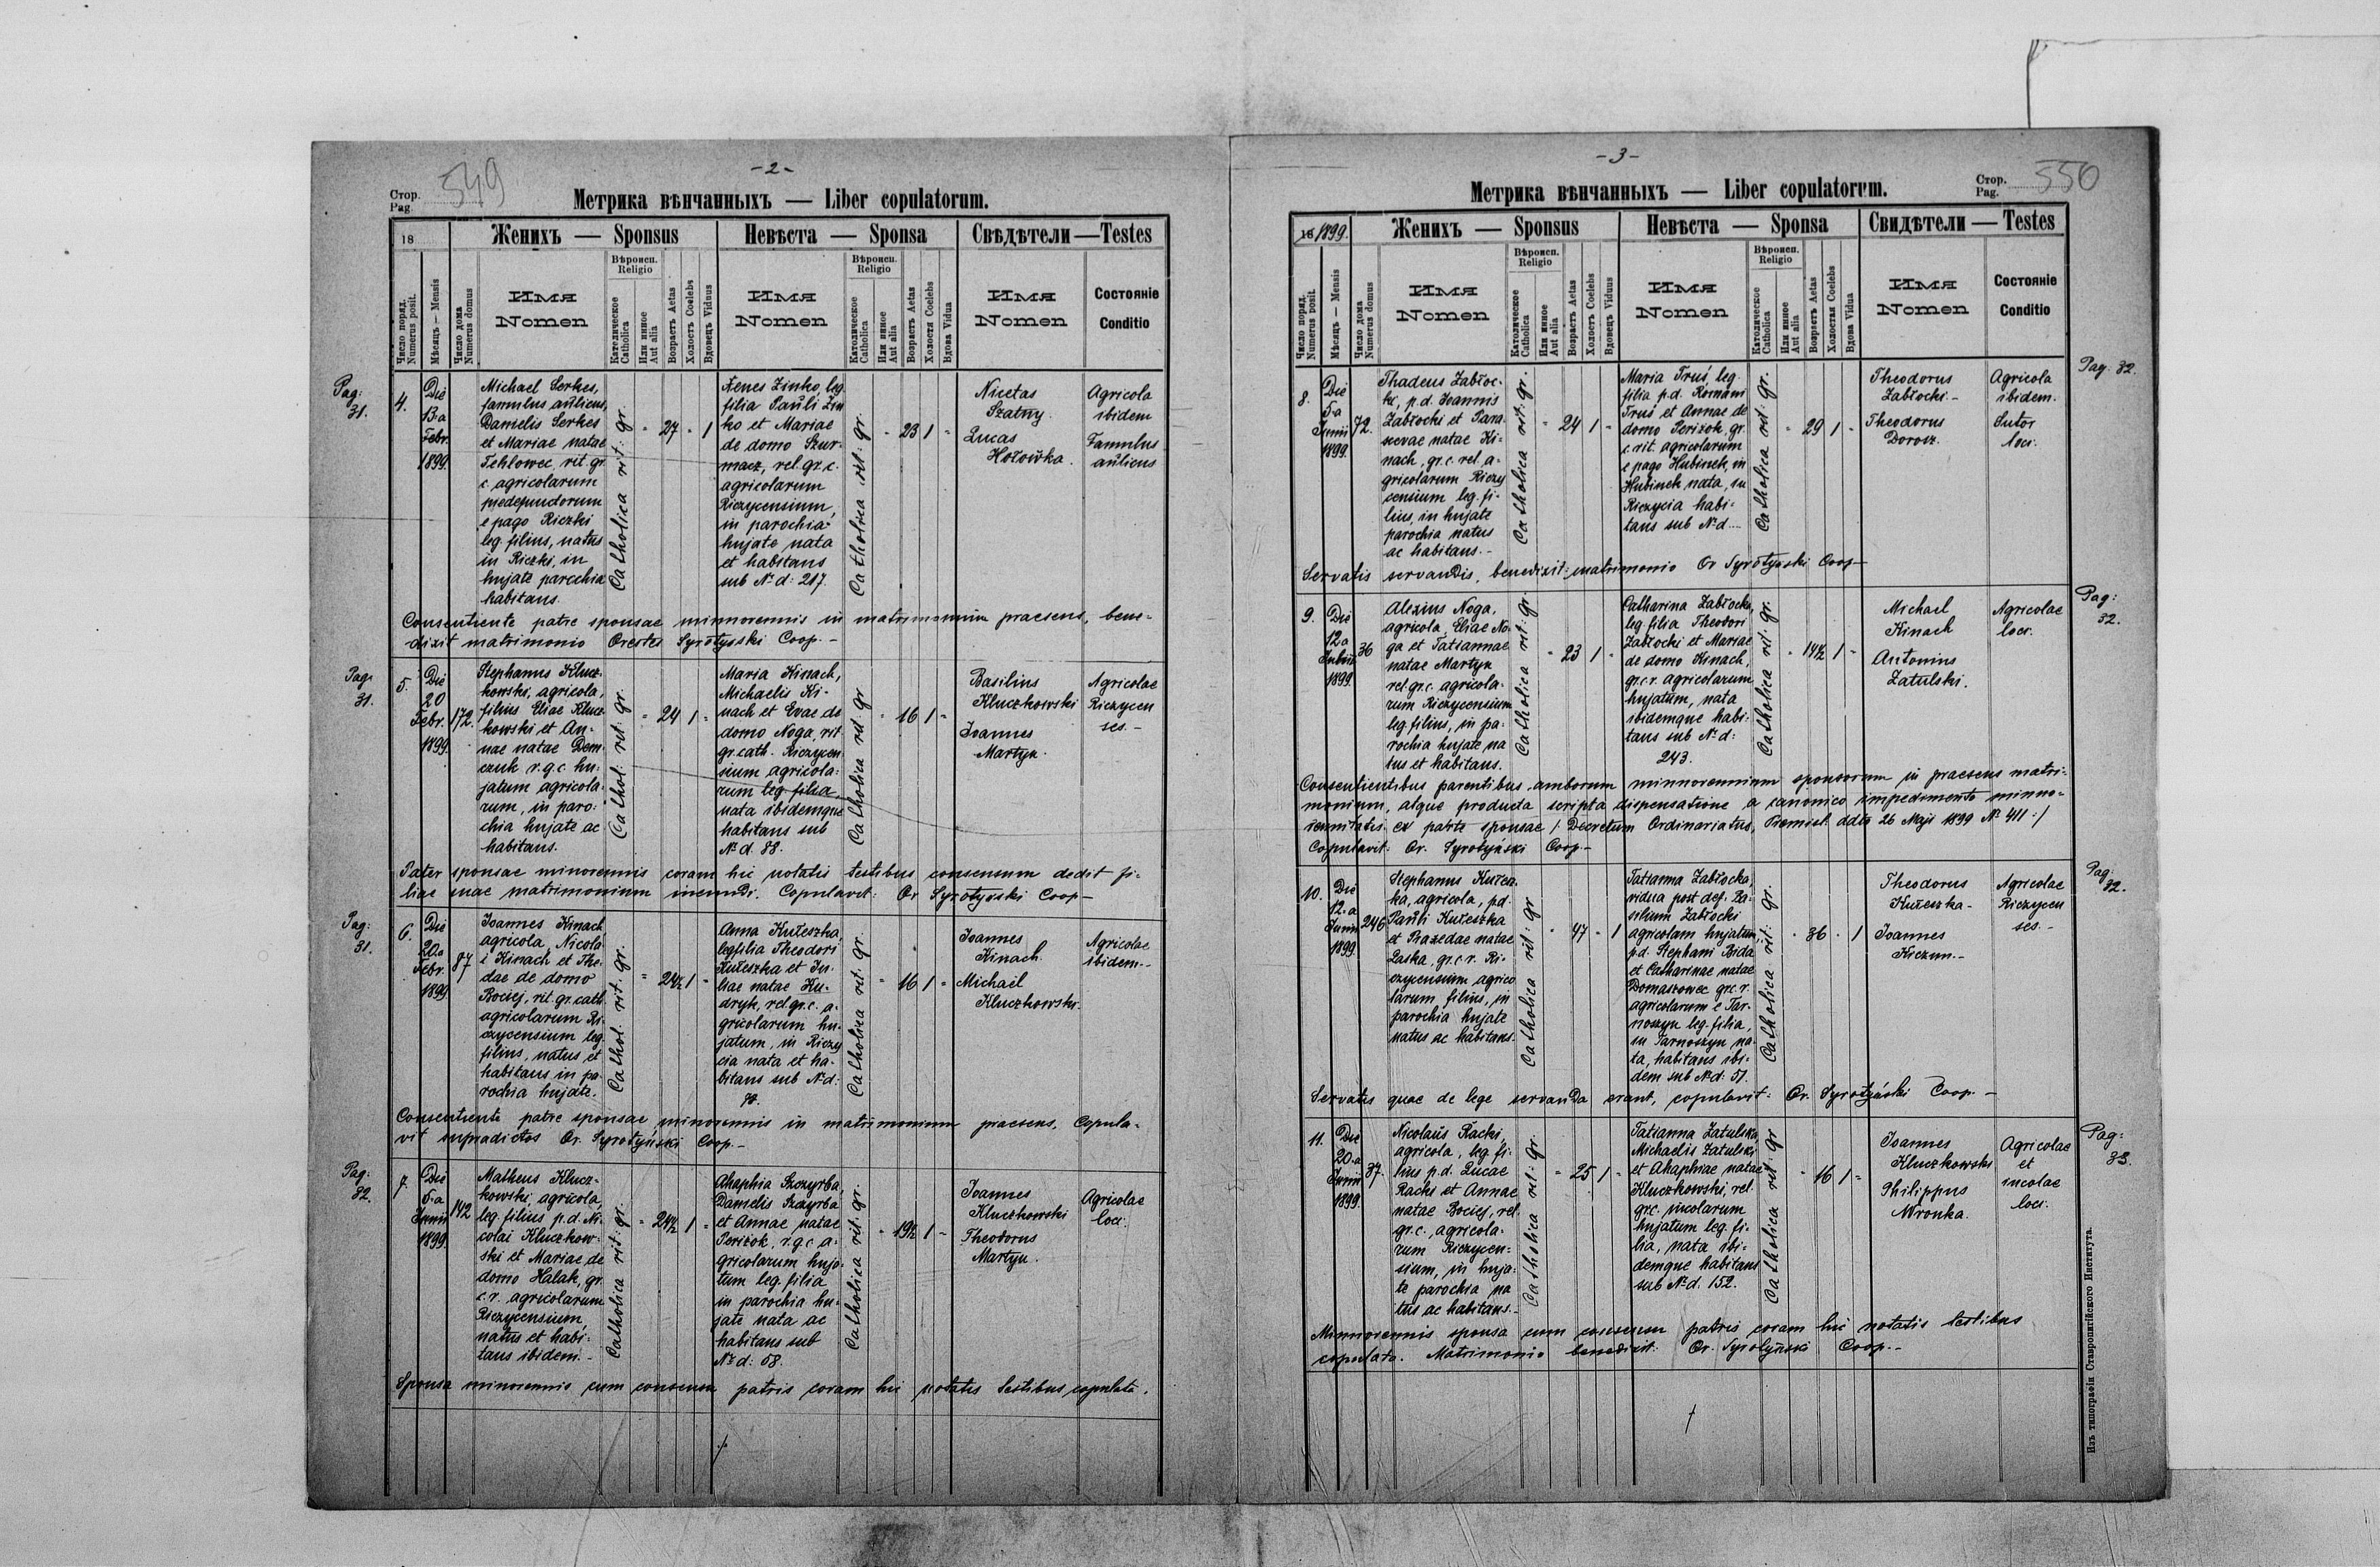 - 2 -
Стор.
Pag.
549
Метрика вѣнчанныхъ — Liber copulatorum.
18
Женихъ — Sponsus
Невѣста — Sponsa
Свѣдѣтели — Testes
Число поряд.
Numerus posit.
Мѣсяць — Mensis
Число дома
Numerus domus
Имя
Nomen
Вѣроисп.
Religio
Католическое
Catholica
Или инное
Aut alia
Возрастъ Aetas
Холостъ Coelebs
Вдовецъ Viduus
Имя
Nomen
Вѣроисп.
Religio
Католическое
Catholica
Или инное
Aut alia
Возрастъ Aetas
Холостя Coelebs
Вдова Vidua
Имя
Nomen
Состояніе
Conditio
Pag:
31.
4.
Die
13-a
Febr.
1899.
Michael Serkes,
famulus aulicus,
Danielis Serkes
et Mariae natae
Tehlowec, rit. gr.
c. agricolarum
predefunctorum
e pago Riczki
leg. filius, natus
in Riczki, in
hujate parochia
habitans.
Catholica rit: gr.
27 - 1
Xenes Zinko, leg.
filia Pauli Zin
ko et Mariae
de domo Szur-
macz, rel. gr. c.
agricolarum
Riczycensium,
in parochia
hujate nata
et habitans
sub Nº d: 217.
Catholica rit: gr
23 1 -
Nicetas
Szatny.
Lucas
Hołowka.
Agricola
ibidem
Famulus
aulicus
Consentiente patre sponsae minnorennis in matrimonium praesens, bene-
dixit matrimonio Orestes Syrotyński Coop. -
Pag.
31.
5.
Die
20
Febr.
1899.
172.
Stephanus Klucz-
kowski, agricola,
filius Eliae Klucz
kowski et An-
nae natae Dem
czuk r. g. c. hu-
jatum agricola-
rum, in paro-
chia hujate ac
habitans.
Cathol: rit: gr.
24 1 -
Maria Kinach,
Michaelis Ki-
nach et Evae de
domo Noga, rit.
gr. cath. Riczycen
sium agricola-
rum leg. filia,
nata ibidemque
habitans sub
Nº d. 88.
Catholica rit: gr
16 1 -
Basilius
Kluczkowski
Joannes
Martyn.
Agricolae
Riczycen
ses. -
Pater sponsae minorennis coram hic notatis testibus consensum dedit fi-
liae suae matrimonium ineundi. Copulavit: Or Syrotyński Coop -
Pag:
31.
6.
Die
20a
Febr.
1899
87
Joannes Kinach
agricola, Nicola
i Kinach et The-
dae de domo
Bociej, rit. gr. cath.
agricolarum Ri-
czycensium leg.
filius, natus et
habitans in pa-
rochia hujate.
Cathol. rit. gr.
24½ 1
Anna Kułeszka,
leg filia Theodori
Kułeszka et Ju-
liae natae Ku-
dryk, rel gr. c. a-
gricolarum hu-
jatum, in Riczy
cia nata et ha-
bitans sub Nº d:
Catholica rit: gr.
16 1 -
Joannes
Kinach.
Michael
Kluczkowski.
Agricolae
ibidem. -
Consentiente patre sponsae minorennis in matrimonium praesens. Copula-
vit supradictos Or. Syrotyński Coop. -
Pag:
32.
7.
Die
5-a
Junii
1899
142
Matheus Klucz-
kowski agricola
leg. filius p. d. Ni-
colai Kluczkow-
ski et Mariae de
domo Halak, gr.
c. r. agricolarum
Riczycensium,
natus et habi-
tans ibidem. -
Catholica rit: gr.
24½ 1 -
Ahaphia Szczyrba
Danielis Szczyrba
et Annae natae
Perizok, r. g. c. a-
gricolarum huja-
tum leg. filia
in parochia hu-
jate nata ac
habitans sub
Nº d: 58.
Catholica rit: gr.
19½ 1 -
Joannes
Kluczkowski
Theodorus
Martyn.
Agricolae
loci.
Sponsa minorennis cum consensu patris coram hic notatis testibus copulata.
- 3 -
Метрика вѣнчанныхъ — Liber copulatorum.
Стор.
Pag.
550
18 1899.
Женихъ — Sponsus
Невѣста — Sponsa
Свидѣтели — Testes
Число поряд.
Numerus posit.
Мѣсяць — Mensis
Число дома
Numerus domus
Имя
Nomen
Вѣроисп.
Religio
Католическое
Catholica
Или инное
Aut alia
Возрастъ Aetas
Холостъ Coelebs
Вдовецъ Viduus
Имя
Nomen
Вѣроисп.
Religio
Католическое
Catholica
Или инное
Aut alia
Возрастъ Aetas
Холостая Coelebs
Вдова Vidua
Имя
Nomen
Состояніе
Conditio
Pag. 32.
8.
Die
5-a
Junii
1899.
72.
Thadeus Zabłoc-
ki, p. d. Joannis
Zabłocki et Para-
scevae natae Ki-
nach, gr. c. rel. a-
gricolarum Riczy
censium leg. fi-
lius, in hujate
parochia natus
ac habitans. -
Catholica rit: gr.
24 1 -
Maria Truś, leg.
filia p. d. Romani
Truś et Annae de
domo Perizok, gr.
c. rit. agricolarum
e pago Hubinek, in
Hubinek nata, in
Riczycia habi-
tans sub Nº d -
Catholica rit: gr.
29 1 -
Theodorus
Zabłocki. -
Theodorus
Dorosz.
Agricola
ibidem.
Sutor
loci.
Servatis servandis, benedixit matrimonio Or Syrotyński Coop -
Pag:
32.
9.
Die
12 a
Junii
1899.
36
Alexius Noga,
agricola, Eliae No-
ga et Tatiannae
natae Martyn
rel. gr. c. agricola-
rum Riczycensium
leg. filius, in pa-
rochia hujate, na
tus et habitans.
Catholica rit: gr.
23 1 -
Catharina Zabłocka,
leg. filia Theodori
Zabłocki et Mariae
de domo Kinach,
gr. c. r. agricolarum
hujatum, nata
ibidemque habi-
tans sub Nº d:
243.
Catholica rit: gr.
14½ 1 -
Michael
Kinach
Antonius
Zatulski.
Agricolae
loci.
Consentientibus parentibus amborum minnorennium sponsorum in praesens matri-
monium, atque producta scripta dispensatione a canonico impedimento minno-
rennitatis ex parte sponsae /: Decretum Ordinariatus, Premisl. ddto 26 Maji 1899 Nº 411 :/
Copulavit: Or. Syrotyński Coop. -
Pag:
32.
10.
Die
12-a
Junii
1899
246
Stephanus Kułesz-
ka, agricola, p. d.
Pauli Kułeszka
et Praxedae natae
Laska, gr. c. r. Ri-
czycensium agrico
larum filius, in
parochia hujate
natus ac habitans.
Catholica rit: gr
47 - 1
Tatianna Zabłocka,
vidua post def. Ba-
silium Zabłocki
agricolam hujatum,
p. d. Stephani Bida
et Catharinae natae
Domaszowec gr. c. r.
agricolarum e Tar-
noszyn leg. filia,
in Tarnoszyn na-
ta, habitans ibi-
dem sub Nº d: 51.
Catholica rit: gr.
36 - 1
Theodorus
Kułeszka -
Joannes
Kiczun. -
Agricolae
Riczycen
ses. -
Servatis quae de lege servanda erant, copulavit: Or. Syrotyński Coop. -
Pag:
33.
11.
Die
20-a
Junii
1899.
37.
Nicolaus Racki,
agricola, leg. fi-
lius p. d. Lucae
Racki et Annae
natae Bociej, rel.
gr. c., agricola-
rum Riczycen-
sium, in huja-
te parochia na
tus ac habitans. -
Catholica rit: gr.
25 1 -
Tatianna Zatulska,
Michaelis Zatulski
et Ahaphiae natae
Kluczkowski, rel.
gr. c. incolarum
hujatum leg. fi-
lia, nata ibi-
demque habitans
sub Nº d. 152.
Catholica rit: gr
16 1 -
Joannes
Kluczkowski
Philippus
Wronka.
Agricolae
et
incolae
loci.
Minnorennis sponsa cum consensu patris coram hic notatis testibus
copulata. Matrimonio benedixit: Or. Syrotyński Coop. -
Изъ типографіи Ставропигійского Института.